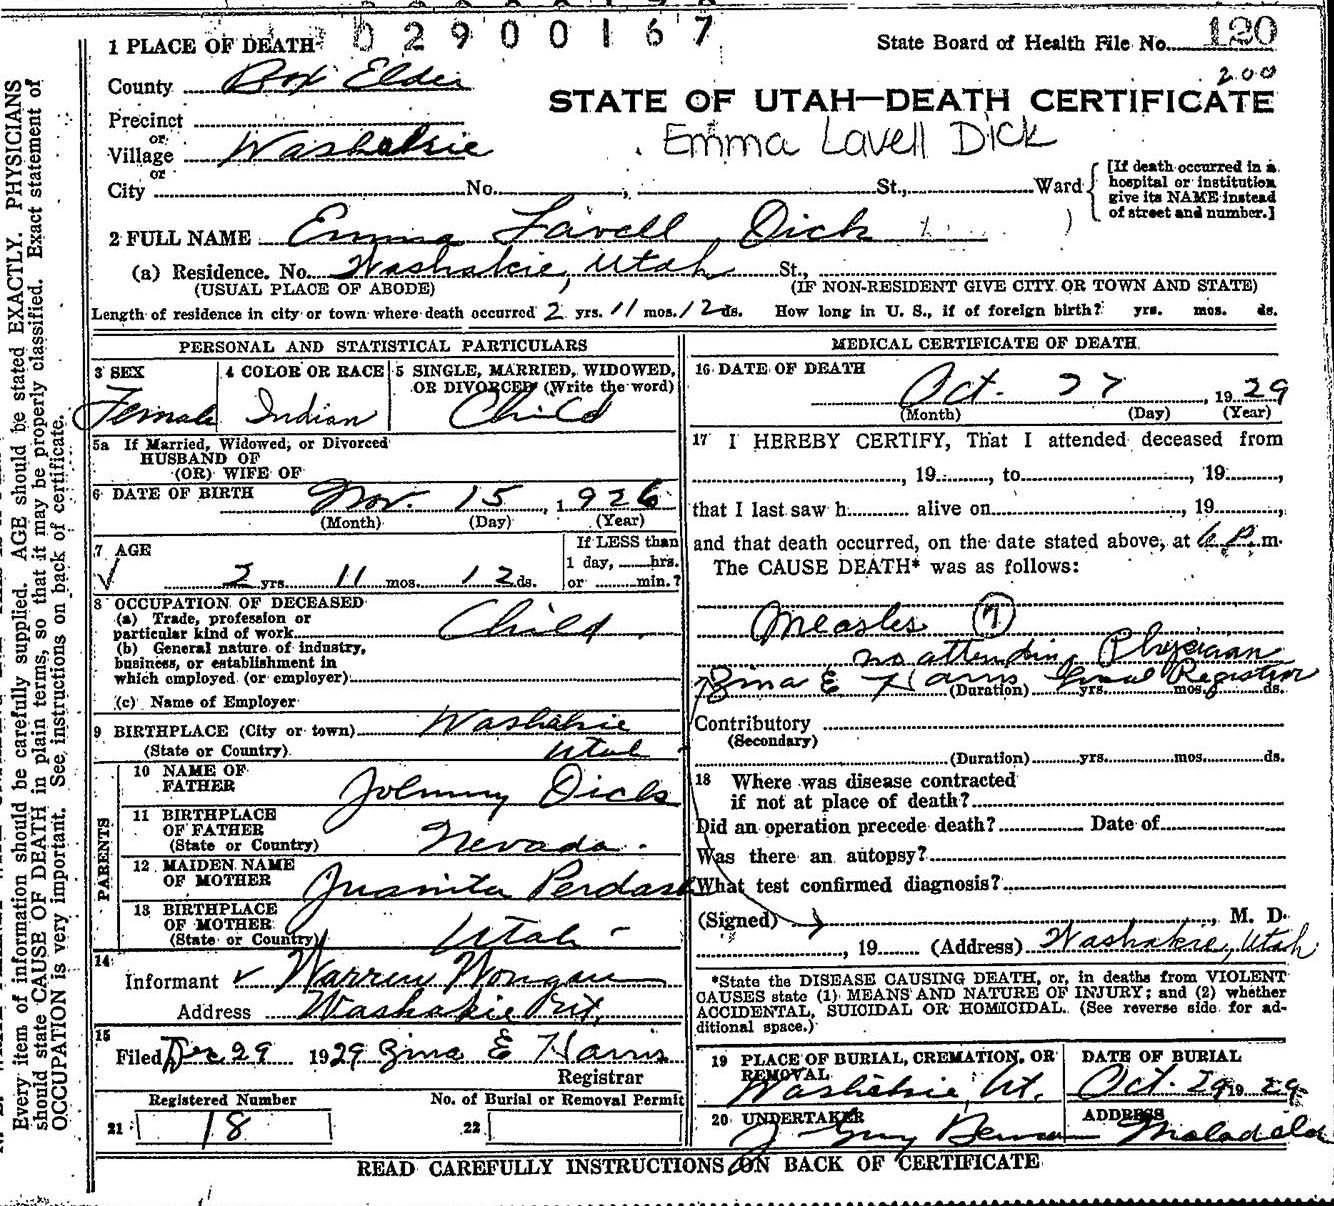 02900167
1 PLACE OF DEATH
State Board of Health File No. 120
200
County Box Elder
STATE OF UTAH—DEATH CERTIFICATE
Precinct
or
Emma Lavell Dick
Village Washakie
or
City No. St., Ward
[If death occurred in a hospital or institution give its NAME instead of street and number.]
2 FULL NAME Emma Lavell Dick
(a) Residence. No. Washakie, Utah St.,
(USUAL PLACE OF ABODE) (IF NON-RESIDENT GIVE CITY OR TOWN AND STATE)
Length of residence in city or town where death occurred 2 yrs. 11 mos. 12 ds. How long in U. S., if of foreign birth? yrs. mos. ds.
PERSONAL AND STATISTICAL PARTICULARS
3 SEX
Female
4 COLOR OR RACE
Indian
5 SINGLE, MARRIED, WIDOWED,
OR DIVORCED (Write the word)
Child
5a If Married, Widowed, or Divorced
HUSBAND OF
(OR) WIFE OF
6 DATE OF BIRTH Nov. 15, 1926
(Month) (Day) (Year)
7 AGE
2 yrs 11 mos. 12 ds.
If LESS than
1 day, hrs.
or min.?
8 OCCUPATION OF DECEASED
(a) Trade, profession or
particular kind of work Child
(b) General nature of industry,
business, or establishment in
which employed (or employer)
(c) Name of Employer
9 BIRTHPLACE (City or town) Washakie
(State or Country) Utah
PARENTS
10 NAME OF
FATHER Johnny Dick
11 BIRTHPLACE
OF FATHER
(State or Country) Nevada.
12 MAIDEN NAME
OF MOTHER Juanita Perdash
13 BIRTHPLACE
OF MOTHER
(State or Country) Utah
14
Informant Warren Wongan
Address Washakie Ut.
15
Filed Dec 29 1929 Zina E Harris
Registrar
Registered Number No. of Burial or Removal Permit
21 18 22
MEDICAL CERTIFICATE OF DEATH
16 DATE OF DEATH
Oct. 27, 1929
(Month) (Day) (Year)
17 I HEREBY CERTIFY, That I attended deceased from
, 19 , to , 19 ,
that I last saw h alive on , 19 ,
and that death occurred, on the date stated above, at 6 P. m.
The CAUSE DEATH* was as follows:
Measles 7
no attending Physician
Zina E Harris Local Registrar
(Duration) yrs. mos. ds.
Contributory
(Secondary)
(Duration) yrs. mos. ds.
18 Where was disease contracted
if not at place of death?
Did an operation precede death? Date of
Was there an autopsy?
What test confirmed diagnosis?
(Signed) , M. D.
, 19 (Address) Washakie, Utah
*State the DISEASE CAUSING DEATH, or, in deaths from VIOLENT
CAUSES state (1) MEANS AND NATURE OF INJURY; and (2) whether
ACCIDENTAL, SUICIDAL OR HOMICIDAL. (See reverse side for ad-
ditional space.)
19 PLACE OF BURIAL, CREMATION, OR
REMOVAL
Washakie, Ut.
DATE OF BURIAL
Oct. 29 1929
20 UNDERTAKER
ADDRESS
Malad Ida
READ CAREFULLY INSTRUCTIONS ON BACK OF CERTIFICATE
Every item of information should be carefully supplied. AGE should be stated EXACTLY. PHYSICIANS
should state CAUSE OF DEATH in plain terms, so that it may be properly classified. Exact statement of
OCCUPATION is very important. See instructions on back of certificate.